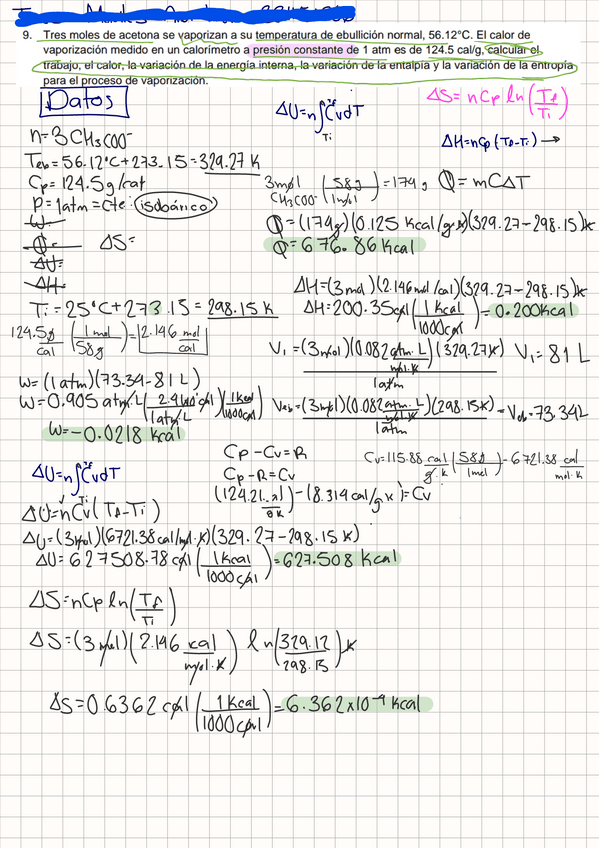 9. Tres moles de acetona se vaporizan a su temperatura de ebullición normal, 56.12°C. El calor de
vaporización medido en un calorímetro a presión constante de 1 atm es de 124.5 cal/g, calcular el
trabajo, el calor, la variación de la energía interna, la variación de la entalpía y la variación de la entropía
para el proceso de vaporización.
Datos
ΔU=n∫CvdT
Ti
ΔS=nCp ln(Tf/Ti)
n=3CH3COO-
ΔH=nCp(Tf-Ti)→
Teb=56.12°C+273.15=329.27 K
Cp=124.5g/cal
3mol CH3COO (58g/1mol)=174g
Q=mCΔT
P=1atm=Cte: isobárico
W=
Q=
ΔS=
ΔU=
ΔH=
Q=(174g)(0.125 Kcal/g·K)(329.27-298.15)K
Q=676.86Kcal
Ti=25°C+273.15=298.15 K
ΔH=(3mol)(2.146mol/cal)(329.27-298.15)K
ΔH=200.35cal(1Kcal/1000cal)=0.200Kcal
124.5g/cal (1mol/58g)=2.146 mol/cal
V1=(3mol)(0.082 atm·L/mol·K)(329.27K)/1atm
V1=81L
W=(1atm)(73.34-81L)
W=0.905 atm·L(/1atm·L)(1Kcal/1000cal)
W=-0.0218 Kcal
Veb=(3mol)(0.082 atm·L/mol·K)(298.15K)/1atm=Veb=73.34L
Cp-Cv=R
Cp-R=Cv
Cv=115.88 cal/g·K(58g/1mol)-6721.38 cal/mol·K
ΔU=n∫CvdT
Ti
-(8.314cal/g·K)=Cv
ΔU=nCv(Tf-Ti)
ΔU=(3mol)(6721.38cal/mol·K)(329.27-298.15K)
ΔU=627508.78cal(1Kcal/1000cal)=627.508 Kcal
ΔS=nCp ln(Tf/Ti)
ΔS=(3mol)(2.146 cal/mol·K) ln(329.12/298.15)K
ΔS=0.6362cal(1Kcal/1000cal)=6.362x10-4 Kcal